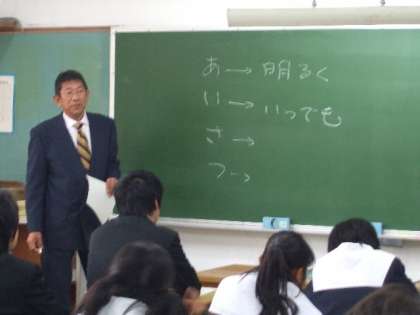 あ→明るく
い→いつでも
さ→
つ→